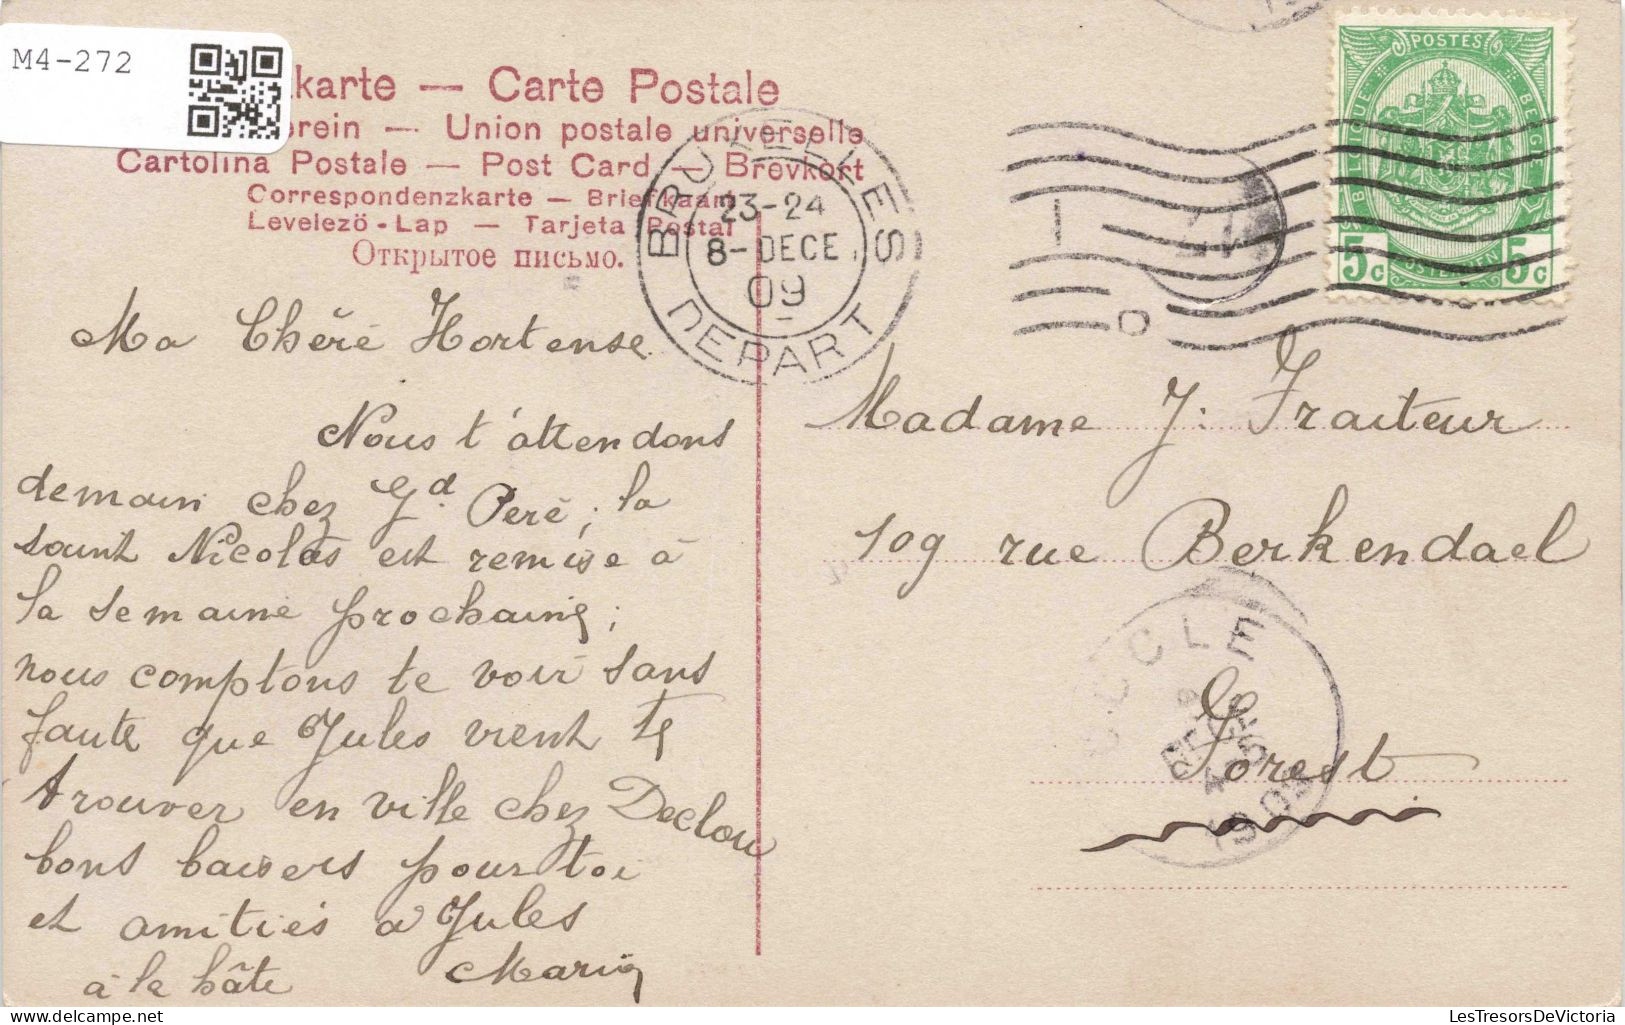 M4-272
karte — Carte Postale
erein — Union postale universelle
Cartolina Postale — Post Card — Brevkort
Correspondenzkarte — Briefkaart
Levelezö-Lap — Tarjeta Postal
Открытое письмо.
BRUXELLES
23-24
8-DECE
09
DEPART
POSTES
BELGIQUE
5c 5c
Ma Chère Hortense.
Nous t'attendons
demain chez Gd. Père; la
saint Nicolas est remise à
la semaine prochaine;
nous comptons te voir sans
faute que Jules vient te
trouver en ville chez Declou
bons baisers pour toi
et amitiés a Jules
à la hâte Maria
Madame J. Traiteur
109 rue Berkendael
UCCLE
Forest
LesTresorsDeVictoria